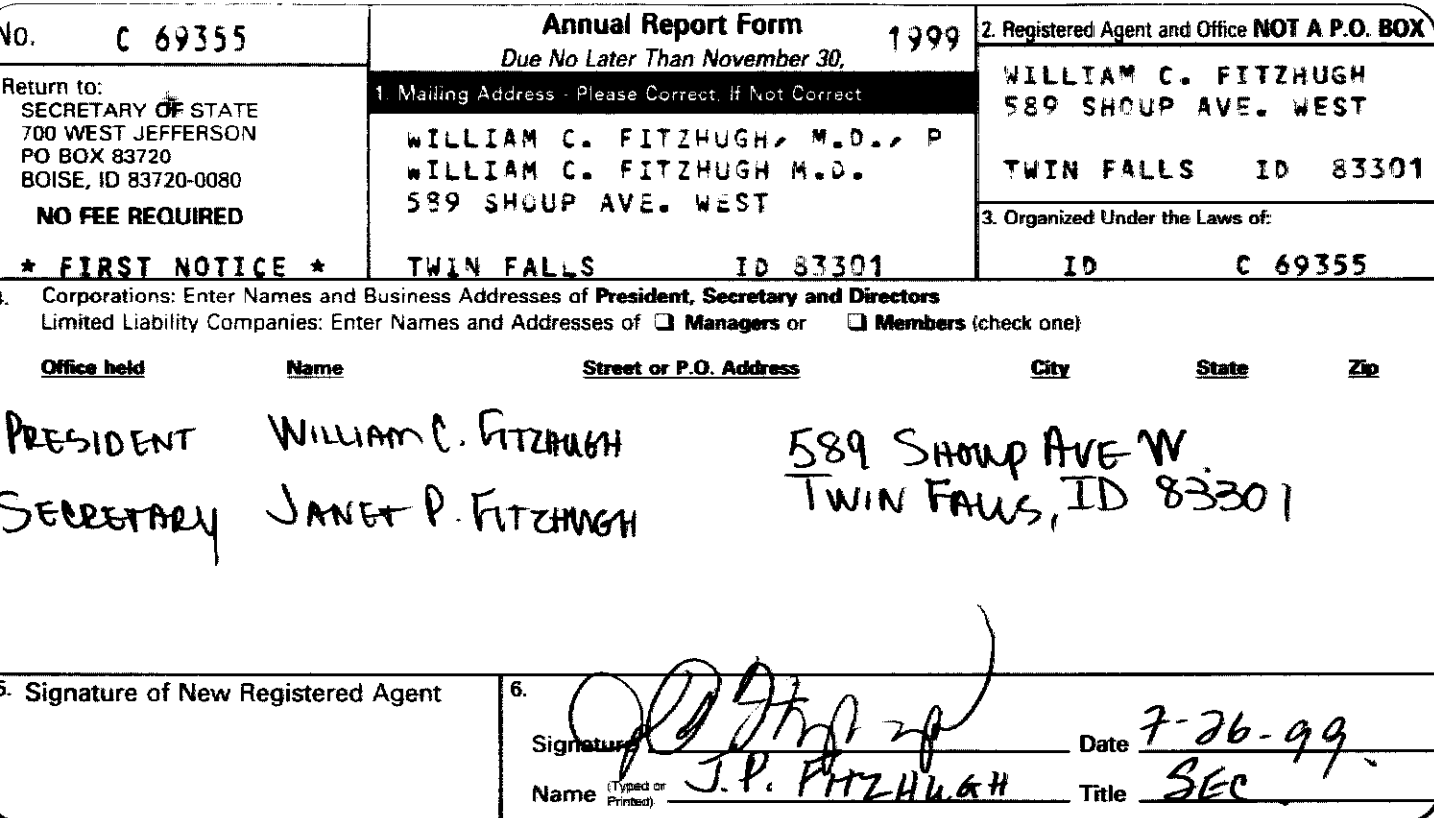 No. C 69355
Return to:
SECRETARY OF STATE
700 WEST JEFFERSON
PO BOX 83720
BOISE, ID 83720-0080
NO FEE REQUIRED
* FIRST NOTICE *
Annual Report Form 1999
Due No Later Than November 30,
1. Mailing Address - Please Correct, If Not Correct
WILLIAM C. FITZHUGH, M.D., P
WILLIAM C. FITZHUGH M.D.
589 SHOUP AVE. WEST
TWIN FALLS ID 83301
2. Registered Agent and Office NOT A P.O. BOX
WILLIAM C. FITZHUGH
589 SHOUP AVE. WEST
TWIN FALLS ID 83301
3. Organized Under the Laws of:
ID C 69355
Corporations: Enter Names and Business Addresses of President, Secretary and Directors
Limited Liability Companies: Enter Names and Addresses of ☐ Managers or ☐ Members (check one)
Office held Name Street or P.O. Address City State Zip
PRESIDENT WILLIAM C. FITZHUGH 589 SHOUP AVE W
SECRETARY JANET P. FITZHUGH TWIN FALLS, ID 83301
5. Signature of New Registered Agent
6.
Signature Date 7-26-99
Name (Typed or Printed) J.P. FITZHUGH Title SEC